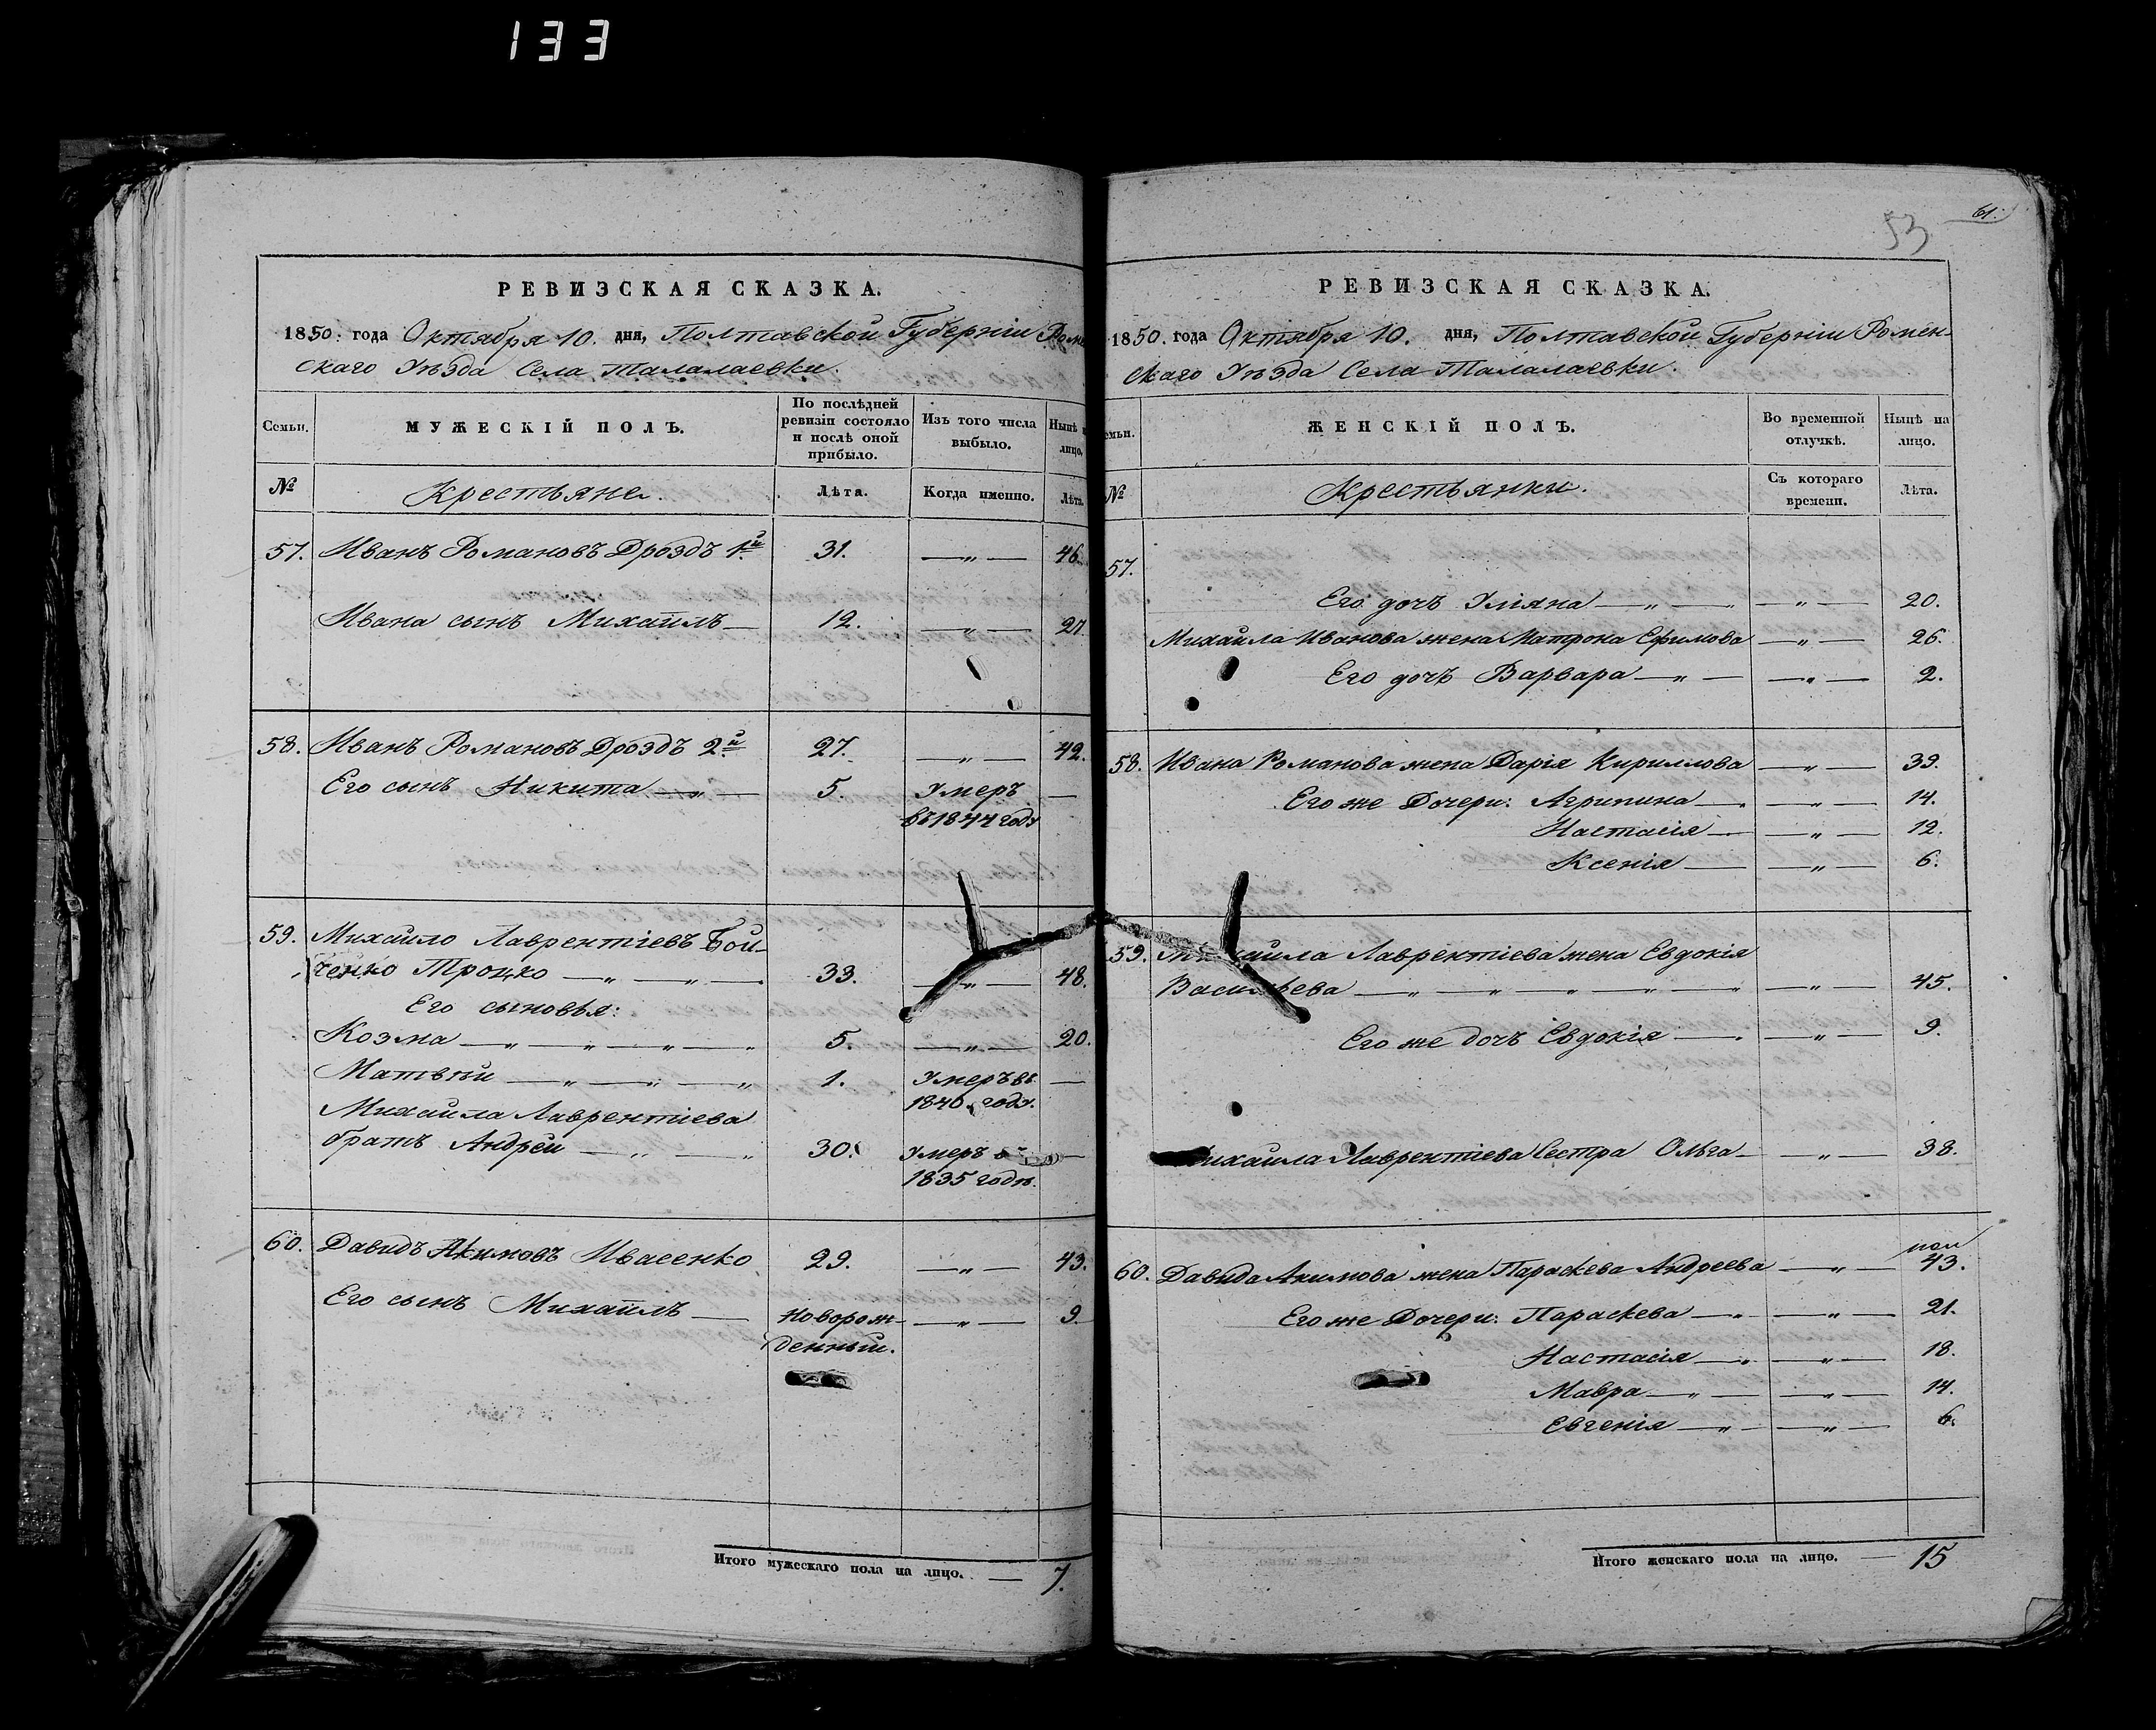 133
РЕВИЗСКАЯ СКАЗКА.
1850. года Октября 10. дня, Полтавской Губерніи Роме
скаго Уѣзда Села Талалаевки.
Семьи.
МУЖЕСКІЙ ПОЛЪ.
По послѣдней ревизіи состояло и послѣ оной прибыло.
Изъ того числа выбыло.
Нынѣ н лицо.
№
Крестьяне.
Лѣта.
Когда именно.
Лѣта.
57. Иванъ Романовъ Дроздъ 1й 31. —„— 46.
Ивана сынъ Михаилъ — 12. —„— 27.
58. Иванъ Романовъ Дроздъ 2й 27. —„— 42.
Его сынъ Никита —„— 5. Умеръ —
въ 1844 году
59. Михайло Лаврентіевъ Бой-
ченко Троцко —„—„— 33. —„— 48.
Его сыновья:
Козма —„—„—„—„ 5. —„— 20.
Матвѣй —„—„—„ 1. Умеръ въ —
1840. году.
Михайла Лаврентіева
братъ Андрей —„—„ 30. Умеръ в —
1835 годѣ.
60. Давидъ Акимовъ Ивасенко 29. —„— 43.
Его сынъ Михаилъ — Новорож- —„— 9.
денный.
Итого мужескаго пола на лицо. — 7.
53
61.
РЕВИЗСКАЯ СКАЗКА.
1850. года Октября 10. дня, Полтавской Губерніи Ромен-
скаго Уѣзда Села Талалаевки.
емьи.
ЖЕНСКІЙ ПОЛЪ.
Во временной отлучкѣ.
Нынѣ на лицо.
№
Крестьянки.
Съ котораго времени.
Лѣта.
57.
Его дочь Уліяна —„—„ —„— 20.
Михайла Иванова жена Матрона Ефимова —„— 26.
Его дочь Варвара —„— —„— 2.
58. Ивана Романова жена Дарія Кириллова —„— 39.
Его же Дочери: Агрипина — —„— 14.
Настасія — —„— 12.
Ксенія — —„— 6.
59. Михайла Лаврентіева жена Евдокія
Васильева —„—„—„—„—„ —„— 45.
Его же дочь Евдокія — —„— 9.
Михайла Лаврентіева Сестра Ольга — —„— 38.
60. Давида Акимова жена Параскева Андреева —„— 43.
Его же Дочери: Параскева —„ —„— 21.
Настасія —„ —„— 18.
Мавра —„— —„— 14.
Евгенія —„— —„— 6.
Итого женскаго пола на лицо. — 15